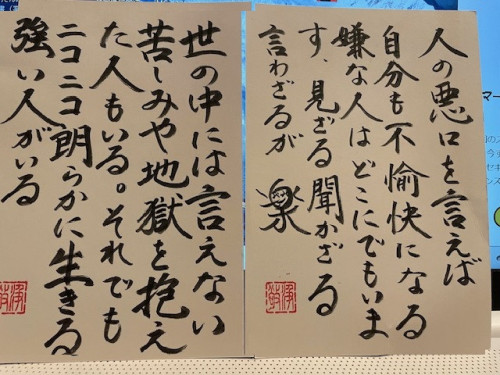 人の悪口を言えば
自分も不愉快になる
嫌な人はどこにでもいま
す、見ざる聞かざる
言わざるが 楽
世の中には言えない
苦しみや地獄を抱え
た人もいる。それでも
ニコニコ朗らかに生きる
強い人がいる